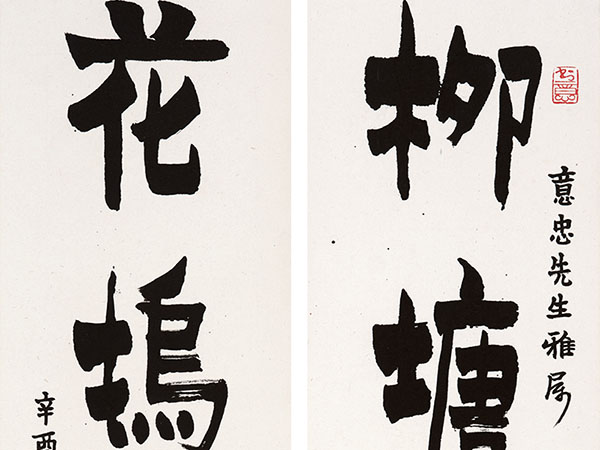 意忠先生雅属
柳塘
花塢
辛酉